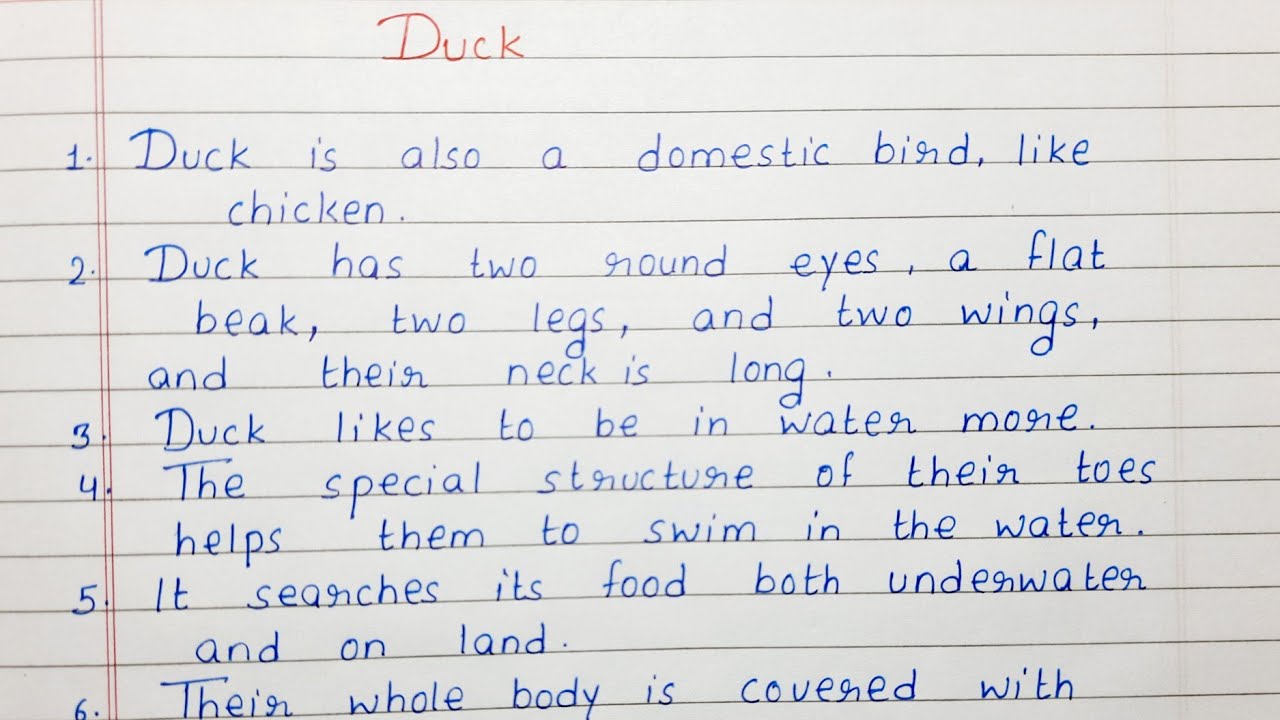 Duck
1. Duck is also a domestic bird, like
chicken.
2. Duck has two round eyes, a flat
beak, two legs, and two wings,
and their neck is long.
3. Duck likes to be in water more.
4. The special structure of their toes
helps them to swim in the water.
5. It searches its food both underwater
and on land.
6. Their whole body is covered with